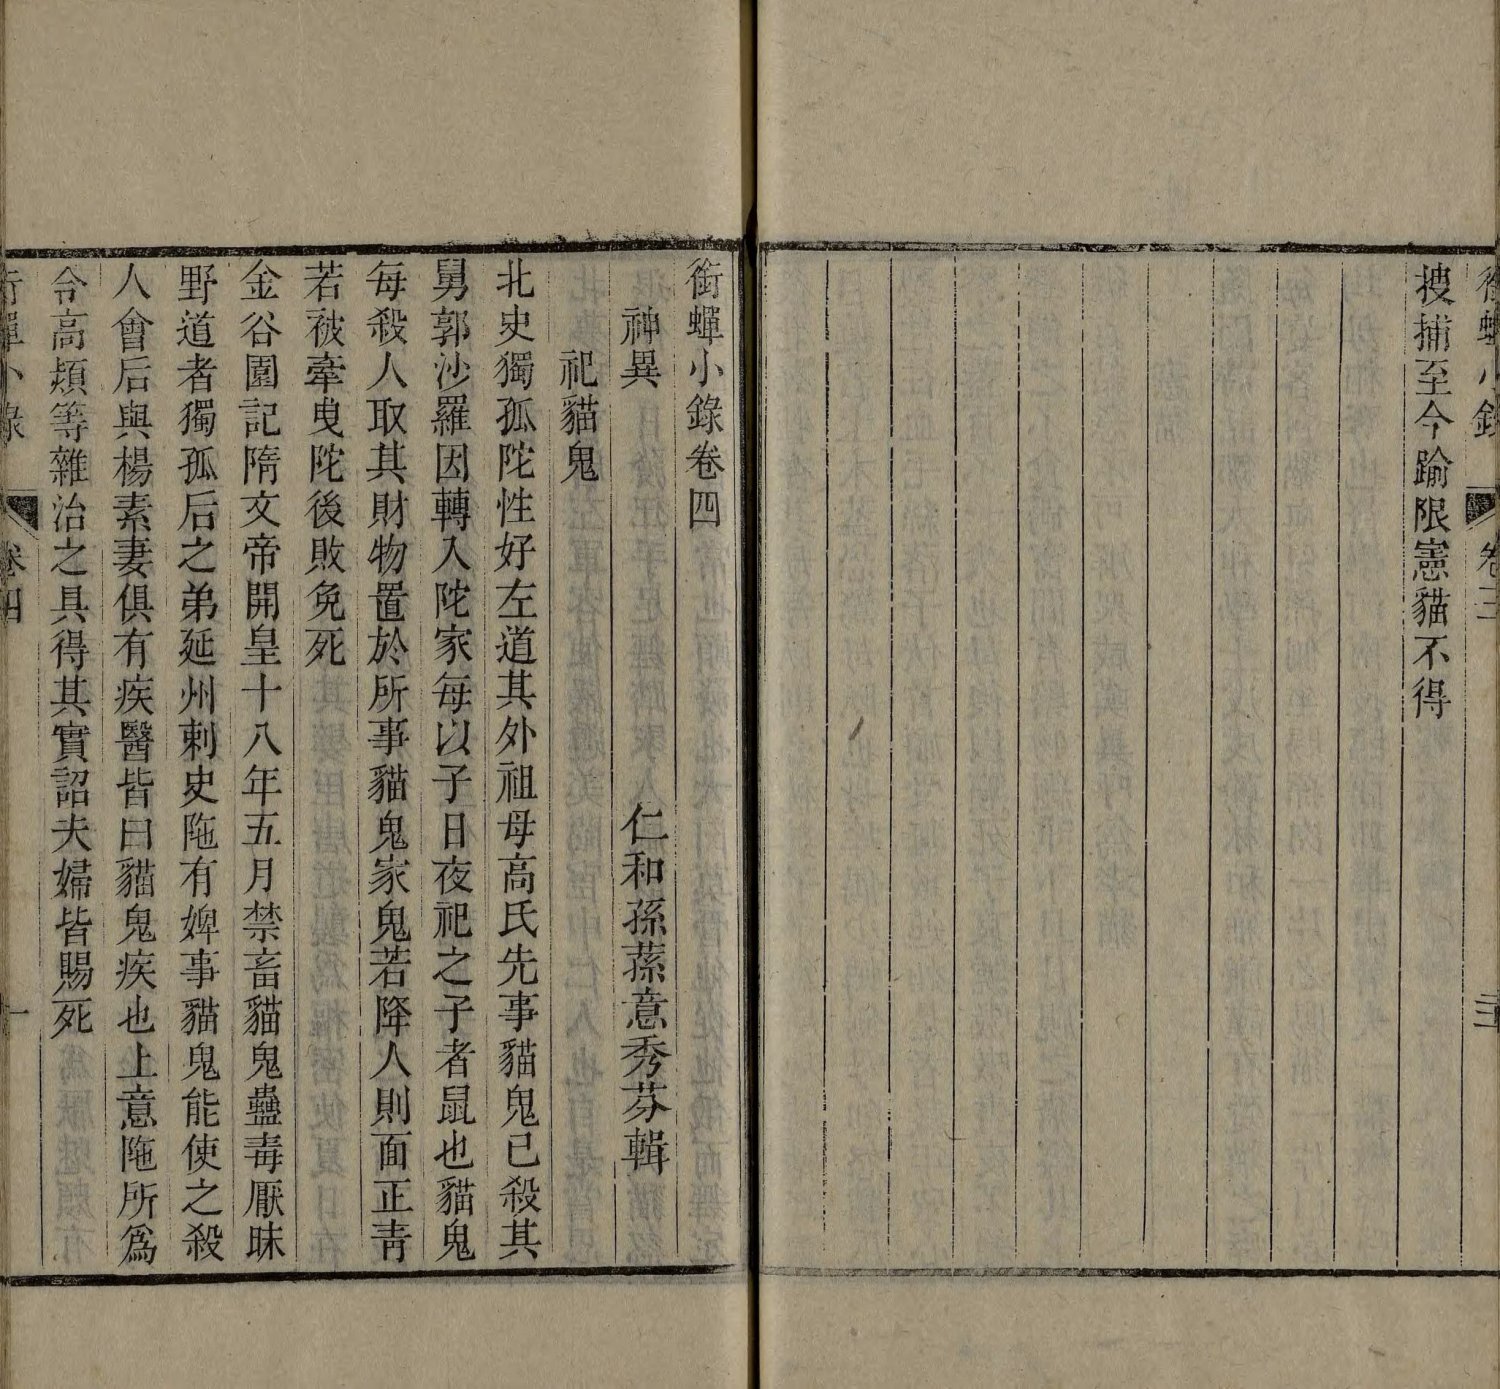 搜捕至今踰限憲貓不得
銜蟬小錄卷四
神異　仁和孫蓀意秀芬輯
祀貓鬼
北史獨孤陀性好左道其外祖母高氏先事貓鬼已殺其
舅郭沙羅因轉入陀家每以子日夜祀之子者鼠也貓鬼
每殺人取其財物置於所事貓鬼家鬼若降人則面正青
若被牽曳陀後敗免死
金谷園記隋文帝開皇十八年五月禁畜貓鬼蠱毒厭昧
野道者獨孤后之弟延州刺史陁有婢事貓鬼能使之殺
人會后與楊素妻俱有疾醫皆曰貓鬼疾也上意陁所爲
令高熲等雜治之具得其實詔夫婦皆賜死
卷四
一